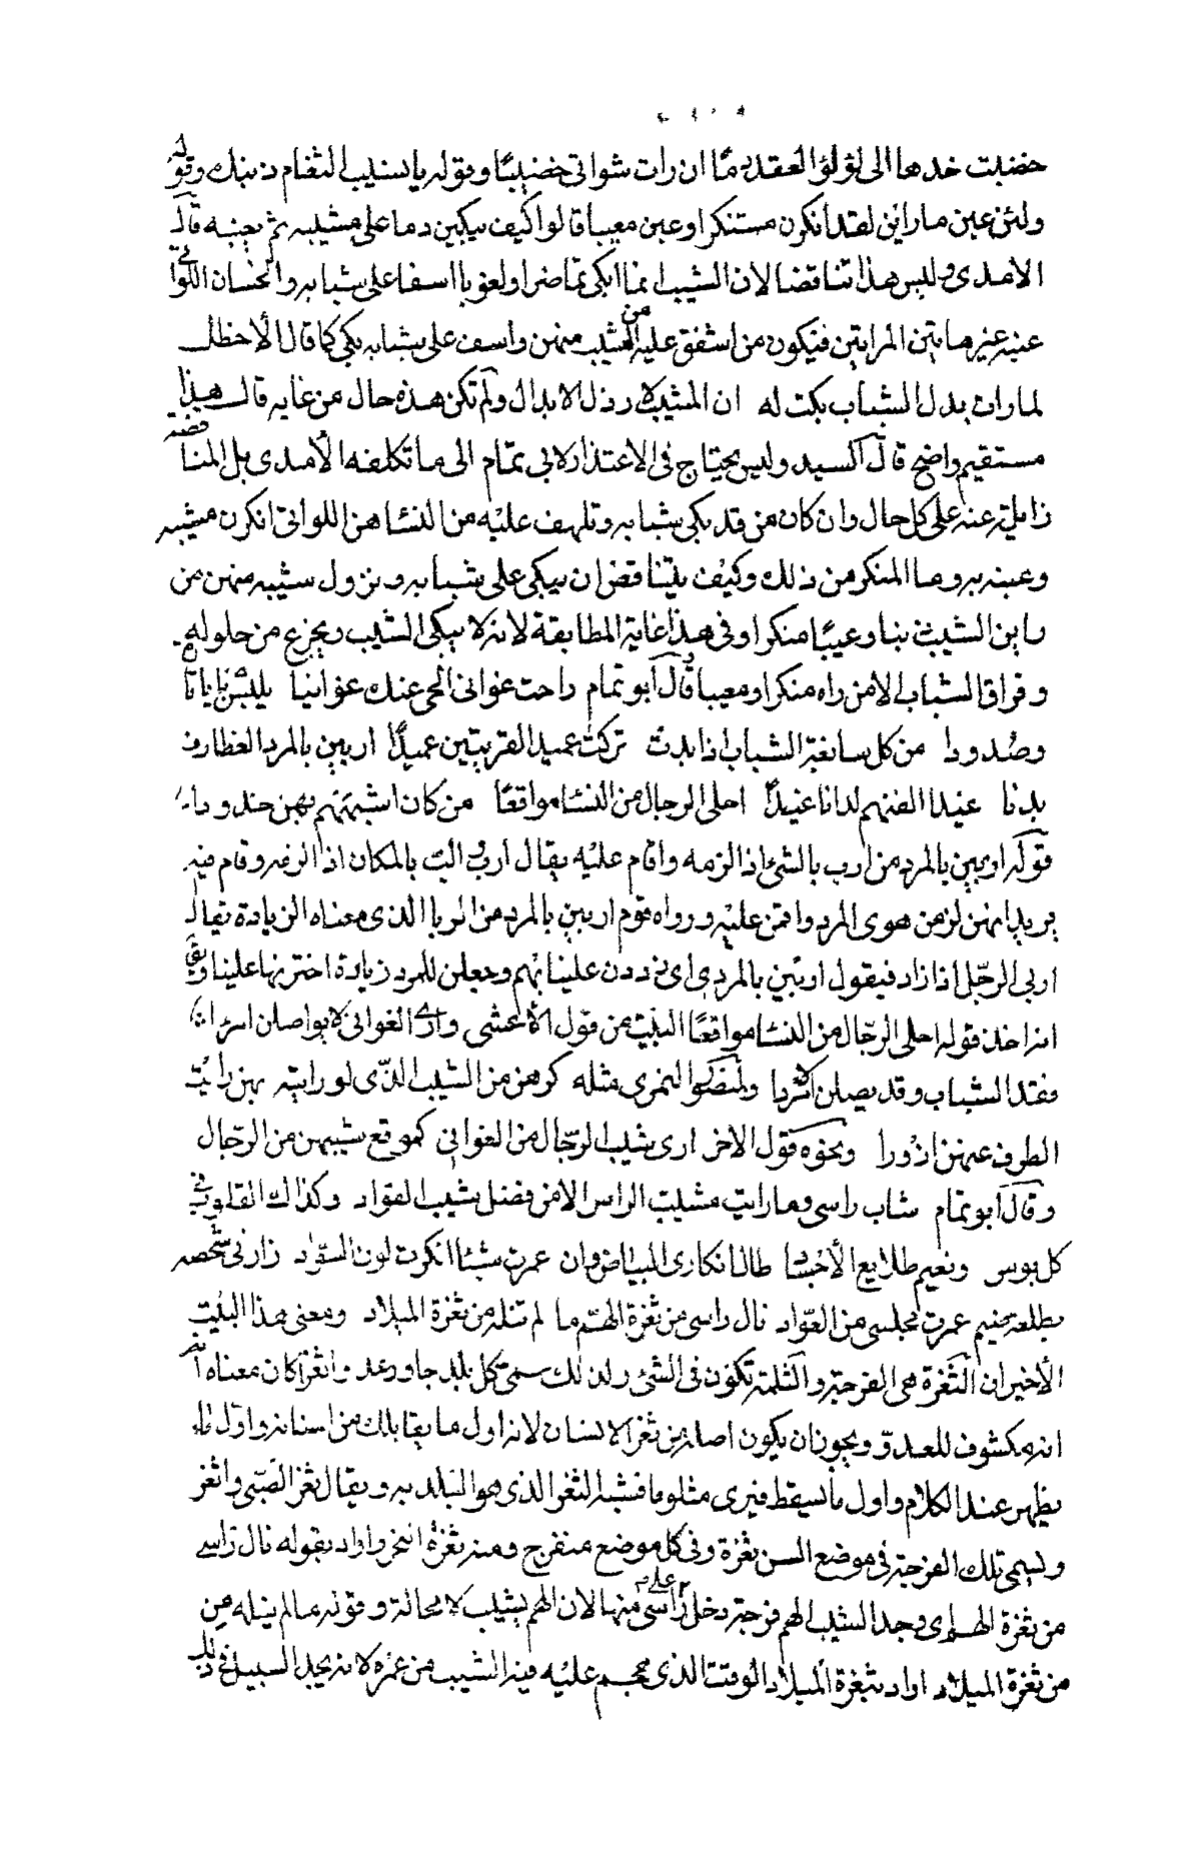 خضبت خدها الى لؤلؤ العقد دمًا ان رات شواتى خضيبًا وقوله يا نسيب الثغام ذنبك وقوله
ولئن عبن ما راين لقد انكرن مستنكرا وعبن معيبا قالوا كيف يبكين دما على مشيبه ثم يعبنه قال
الامدى وليس هذا تناقضا لان الشيب انما ابكى تماضر او لعوبا اسفا على شبابه والحسان اللواتى
عبنه غير هاتين المراتين فيكون من اشفق عليه من الشيب منهن واسف على شبابه بكى كما قال الأخطل
لما رات بدل الشباب بكت له ان المشيب لارذل الابدال ولم تكن هذه حال من عابه قال هذا
مستقيم واضح قال السيد وليس يحتاج فى الاعتذار لابى تمام الى ما تكلفه الأمدى بل المناقضة
زايلة عنه على كل حال وان كان من قد بكى شبابه وتلهف عليه من النسا هن اللواتى انكرن مشيبه
وعبنه به وما المنكر من ذلك وكيف يتناقض ان يبكى على شبابه ونزول شيبه منهن من
راين الشيب ذنبا وعيبًا منكرا وفى هذا غاية المطابقة لانه لا يبكى الشيب ويجزع من حلوله
وفراق الشباب الا من راه منكرا ومعيبا قال أبو تمام راحت غوانى الحى عنك غوانيا يلبسن نايا تارة
وصدودا من كل سابغة الشباب اذا بدت تركت عميد القريتين عميدًا اربين بالمرد الغطارف
بدنا غيدا الفنهم لدانا غيدًا احلى الرجال من النسا مواقعًا من كان اشبههم بهن خدودا
قوله اربين بالمرد من ارب بالشئ اذا لزمه واقام عليه يقال ارب والب بالمكان اذا لزمه وقام فيه
يريد انهن لزمن هوى المرد واقمن عليه ورواه قوم اربين بالمرد من الربا الذى معناه الزيادة يقال
اربى الرجل اذا زاد فيقول اربين بالمرد اى زدن علينا بهم وجعلن للمرد زيادة اخترنها علينا وبقى
انه اخذ قوله احلى الرجال من النسا مواقعًا البيت من قول الأعشى وارى الغوانى لا يواصلن امرا
فقد الشباب وقد يصلن الامردا ولمنصور النمرى مثله كرهن من الشيب الذى لو راينه بهن رايت
الطرف عنهن ازورا ونحوه قول الاخر ارى شيب الرجال من الغوانى كموقع شيبهن من الرجال
وقال أبو تمام شاب راسى وما رايت مشيب الراس الا من فضل شيب الفواد وكذاك القلوب فى
كل بوس ونعيم طلايع الأجساد طال انكارى البياض وان عمرت شيئا انكرت لون السواد زارنى شخصه
بطلعة ضيم عمرت مجلسى من العواد نال راسى من ثغرة الهم ما لم تنله من ثغرة الميلاد ومعنى هذا البيت
الأخير ان الثغرة هى الفرجة والثلمة تكون فى الشئ ولذلك سمى كل بلد جاور عدوا ثغرا كان معناه
انه مكشوف للعدو ويجوز ان يكون اصله من ثغر الانسان لانه اول ما يقابلك من اسنانه واول ما
يظهر عند الكلام واول ما يسقط فيرى مثلوما فشبه الثغر الذى هو البلد به ويقال ثغر الصبى واثغر
وليسمى تلك الفرجة فى موضع السن ثغرة وفى كل موضع منفرج ومنه ثغرة النحر واراد بقوله نال راسى
من ثغرة الهم اى وجد الشيب الهم فرجة دخل على راسى منها لان الهم يشيب لا محالة وقوله ما لم ينله من
من ثغرة الميلاد اراد بثغرة الميلاد الوقت الذى يهجم عليه فيه الشيب من عمره لانه يجد السبيل فى ذلك